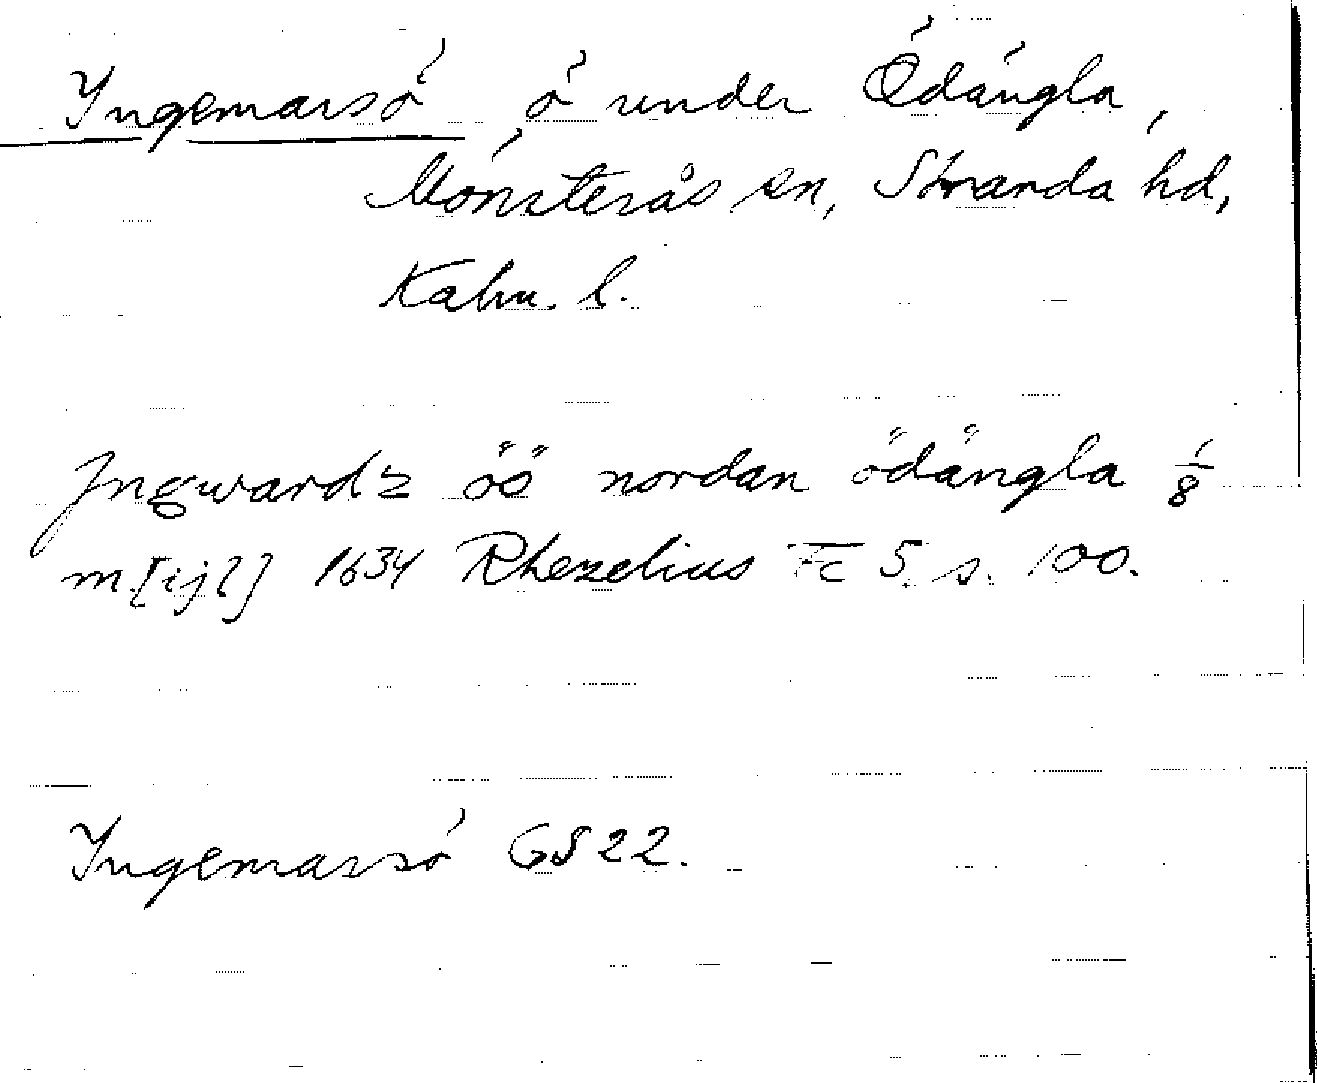 Ingemarsö ö under Ödängla,
Mönsterås sn, Stranda hd,
Kalm. l.
Jngwardz öö nordan ödängla 1/8
m[ijl] 1634 Rhezelius Fc 5 s. 100.
Ingemarsö GS22.